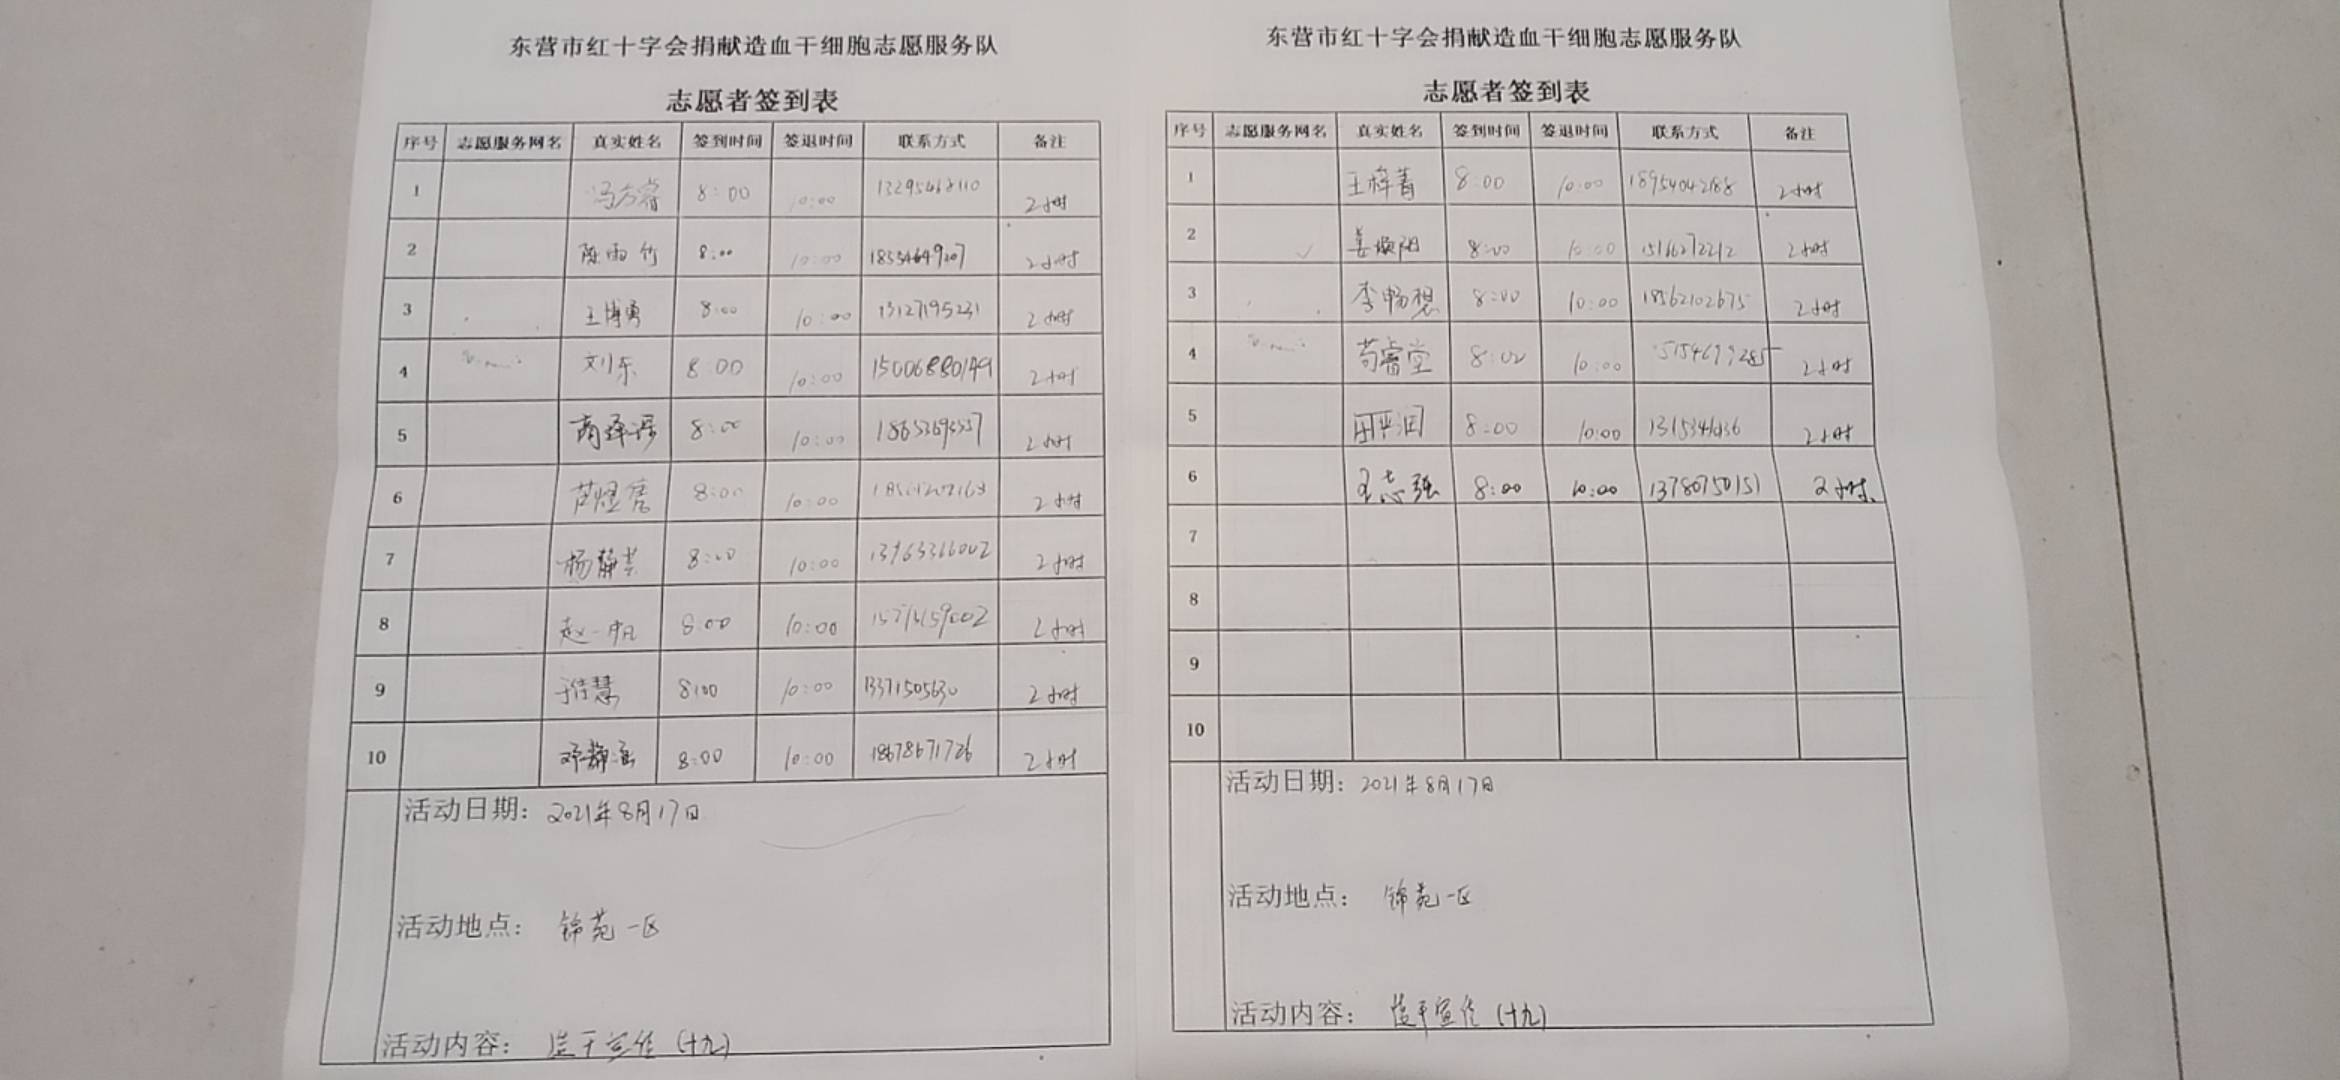 东营市红十字会捐献造血干细胞志愿服务队
志愿者签到表
序号 志愿服务网名 真实姓名 签到时间 签退时间 联系方式 备注
1 8:00 10:00 2小时
2 陈雨竹 8:00 10:00 2小时
3 王博勇 8:00 10:00 13127195231 2小时
4 刘东 8:00 10:00 15006880149 2小时
5 8:00 10:00 2小时
6 8:00 10:00 2小时
7 8:00 10:00 2小时
8 赵一帆 8:00 10:00 2小时
9 于佳慧 8:00 10:00 13371505630 2小时
10 邓静涵 8:00 10:00 18678671726 2小时
活动日期: 2021年8月17日
活动地点: 锦苑一区
活动内容: 造干宣传(十九)
东营市红十字会捐献造血干细胞志愿服务队
志愿者签到表
序号 志愿服务网名 真实姓名 签到时间 签退时间 联系方式 备注
1 王梓菁 8:00 10:00 18954042188 2小时
2 8:00 10:00 2小时
3 李畅想 8:00 10:00 18562102675 2小时
4 苟睿堂 8:00 10:00 2小时
5 8:00 10:00 2小时
6 王志强 8:00 10:00 13780750151 2小时
7
8
9
10
活动日期: 2021年8月17日
活动地点: 锦苑一区
活动内容: 造干宣传(十九)